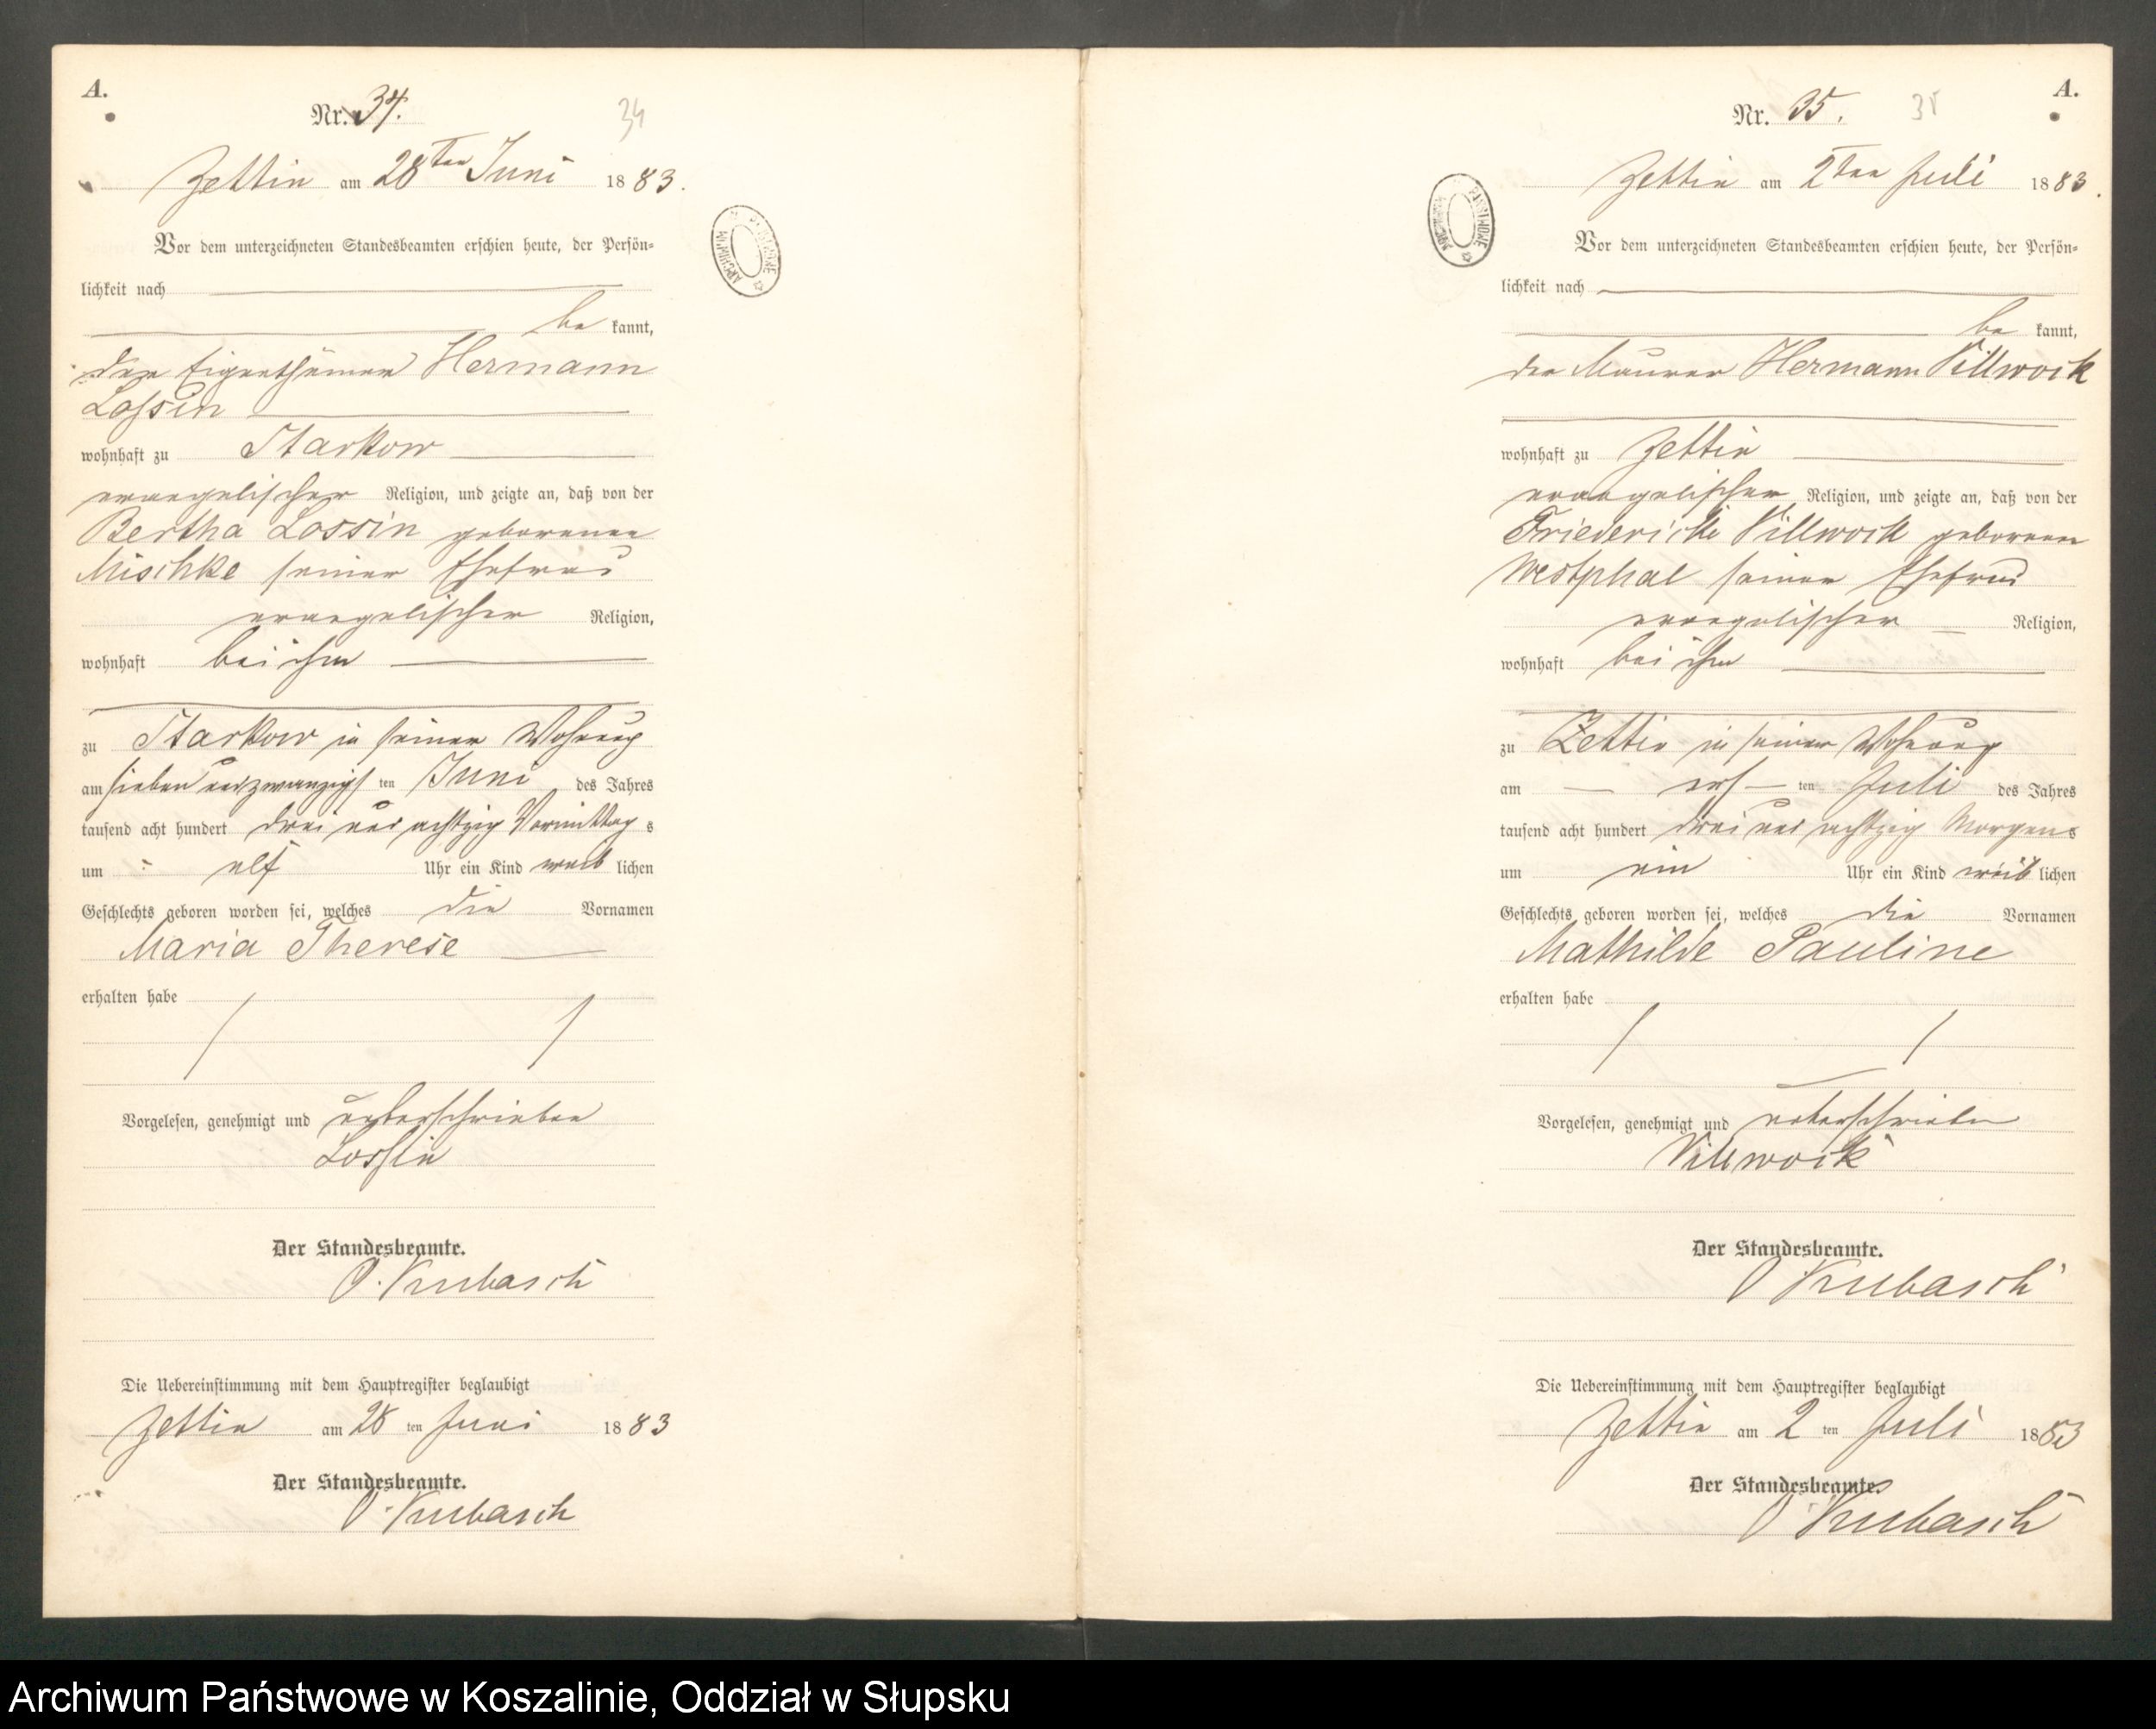 A.
Nr. 34.
34
Zettin am 28ten Juni 1883.
Vor dem unterzeichneten Standesbeamten erschien heute, der Persön-
lichkeit nach
be kannt,
der Eigenthümer Hermann
Lossin
wohnhaft zu Starkow
evangelischer Religion, und zeigte an, daß von der
Bertha Lossin geborenen
Mischke seiner Ehefrau
evangelischer Religion,
wohnhaft bei ihm
zu Starkow in seiner Wohnung
am sieben und zwanzigs ten Juni des Jahres
tausend acht hundert drei und achtzig Vormittag s
um elf Uhr ein Kind weib lichen
Geschlechts geboren worden sei, welches die Vornamen
Maria Therese
erhalten habe
Vorgelesen, genehmigt und unterschrieben
Lossin
Der Standesbeamte.
O. Kubasch
Die Uebereinstimmung mit dem Hauptregister beglaubigt
Zettin am 28 ten Juni 1883
Der Standesbeamte.
O. Kubasch
A.
Nr. 35.
35
Zettin am 2ten Juli 1883.
Vor dem unterzeichneten Standesbeamten erschien heute, der Persön-
lichkeit nach
be kannt,
der Maurer Hermann Villwock
wohnhaft zu Zettin
evangelischer Religion, und zeigte an, daß von der
Friedericke Villwock geborenen
Westphal seiner Ehefrau
evangelischer Religion,
wohnhaft bei ihm
zu Zettin in seiner Wohnung
am ers ten Juli des Jahres
tausend acht hundert drei und achtzig Morgens
um ein Uhr ein Kind weib lichen
Geschlechts geboren worden sei, welches die Vornamen
Mathilde Pauline
erhalten habe
Vorgelesen, genehmigt und unterschrieben
Villwock
Der Standesbeamte.
O Kubasch
Die Uebereinstimmung mit dem Hauptregister beglaubigt
Zettin am 2 ten Juli 1883
Der Standesbeamte.
O Kubasch
ARCHIWUM PAŃSTWOWE
ARCHIWUM PAŃSTWOWE
Archiwum Państwowe w Koszalinie, Oddział w Słupsku